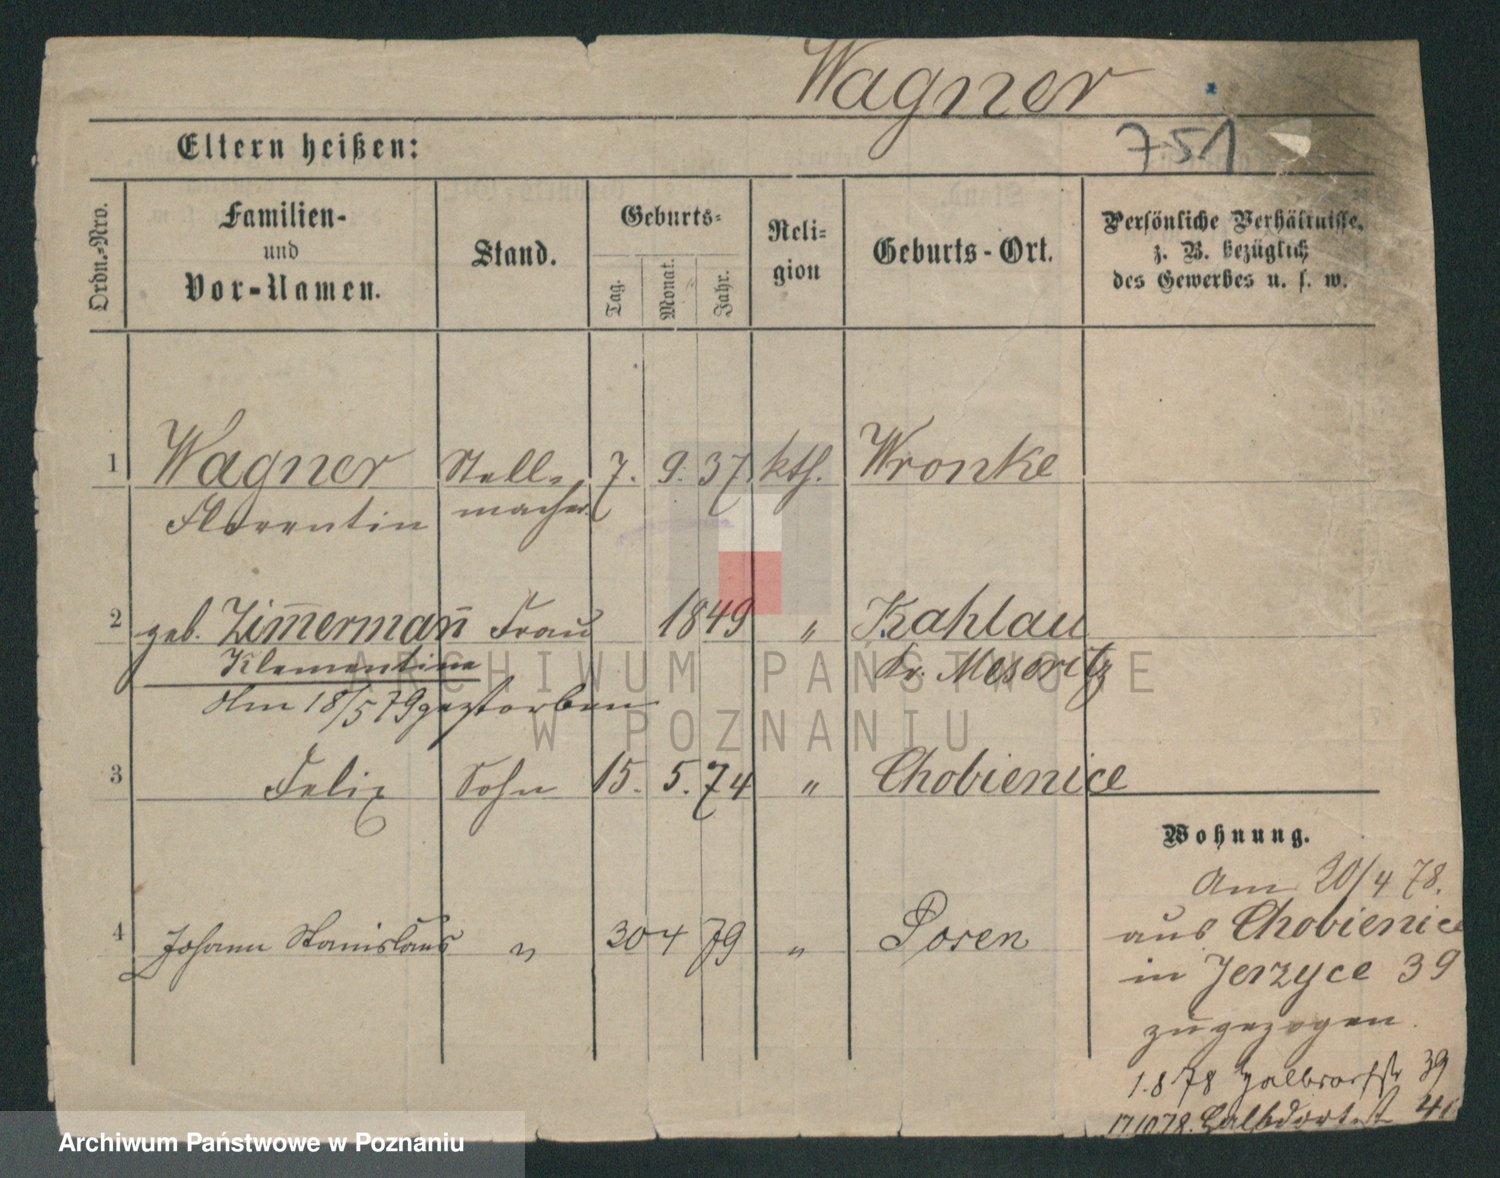 Wagner
751
Eltern heißen:
Ordn.-Nro.
Familien-
und
Vor-Namen.
Stand.
Geburts-
Tag.
Monat.
Jahr.
Reli-
gion
Geburts-Ort.
Persönliche Verhältnisse,
z. B. bezüglich
des Gewerbes u. s. w.
1 Wagner Stell- 7. 9. 37 kth. Wronke
Florentin macher
2 geb. Zim̄erman̄ Frau 1849 " Kahlau
Klementine Kr. Meseritz
Am 18/5 79 gestorben
3 Felix Sohn 15. 5. 74 " Chobienice
4 Johann Stanislaus " 30 4 79 " Posen
Wohnung.
Am 20/4 78.
aus Chobienice
in Jerzyce 39
zugezogen.
1.8 78 39
17/10 78.
ARCHIWUM PAŃSTWOWE
W POZNANIU
Archiwum Państwowe w Poznaniu